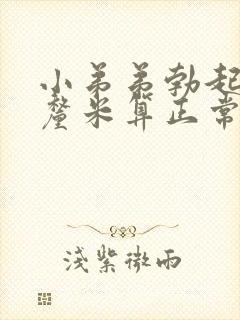 小弟弟勃起
釐米算正常
浅紫微雨